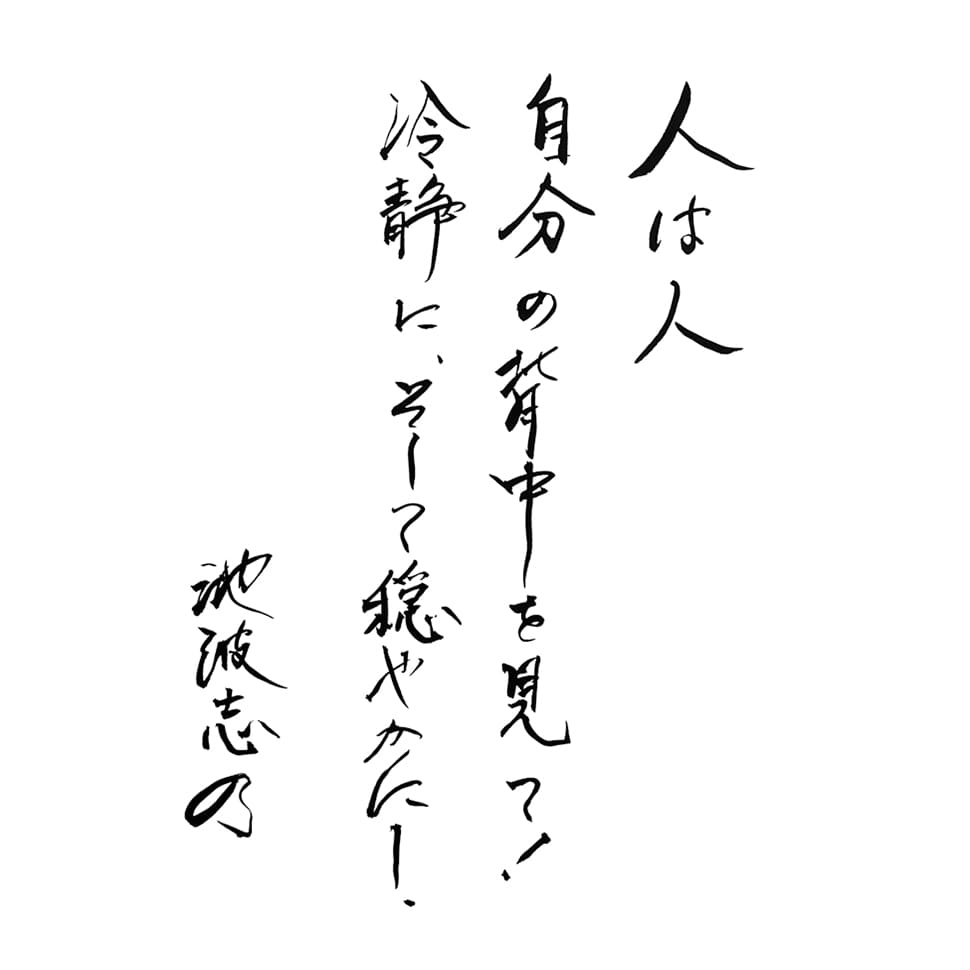 人は人
自分の背中を見て!
冷静に、そして穏やかにー.
池波志乃